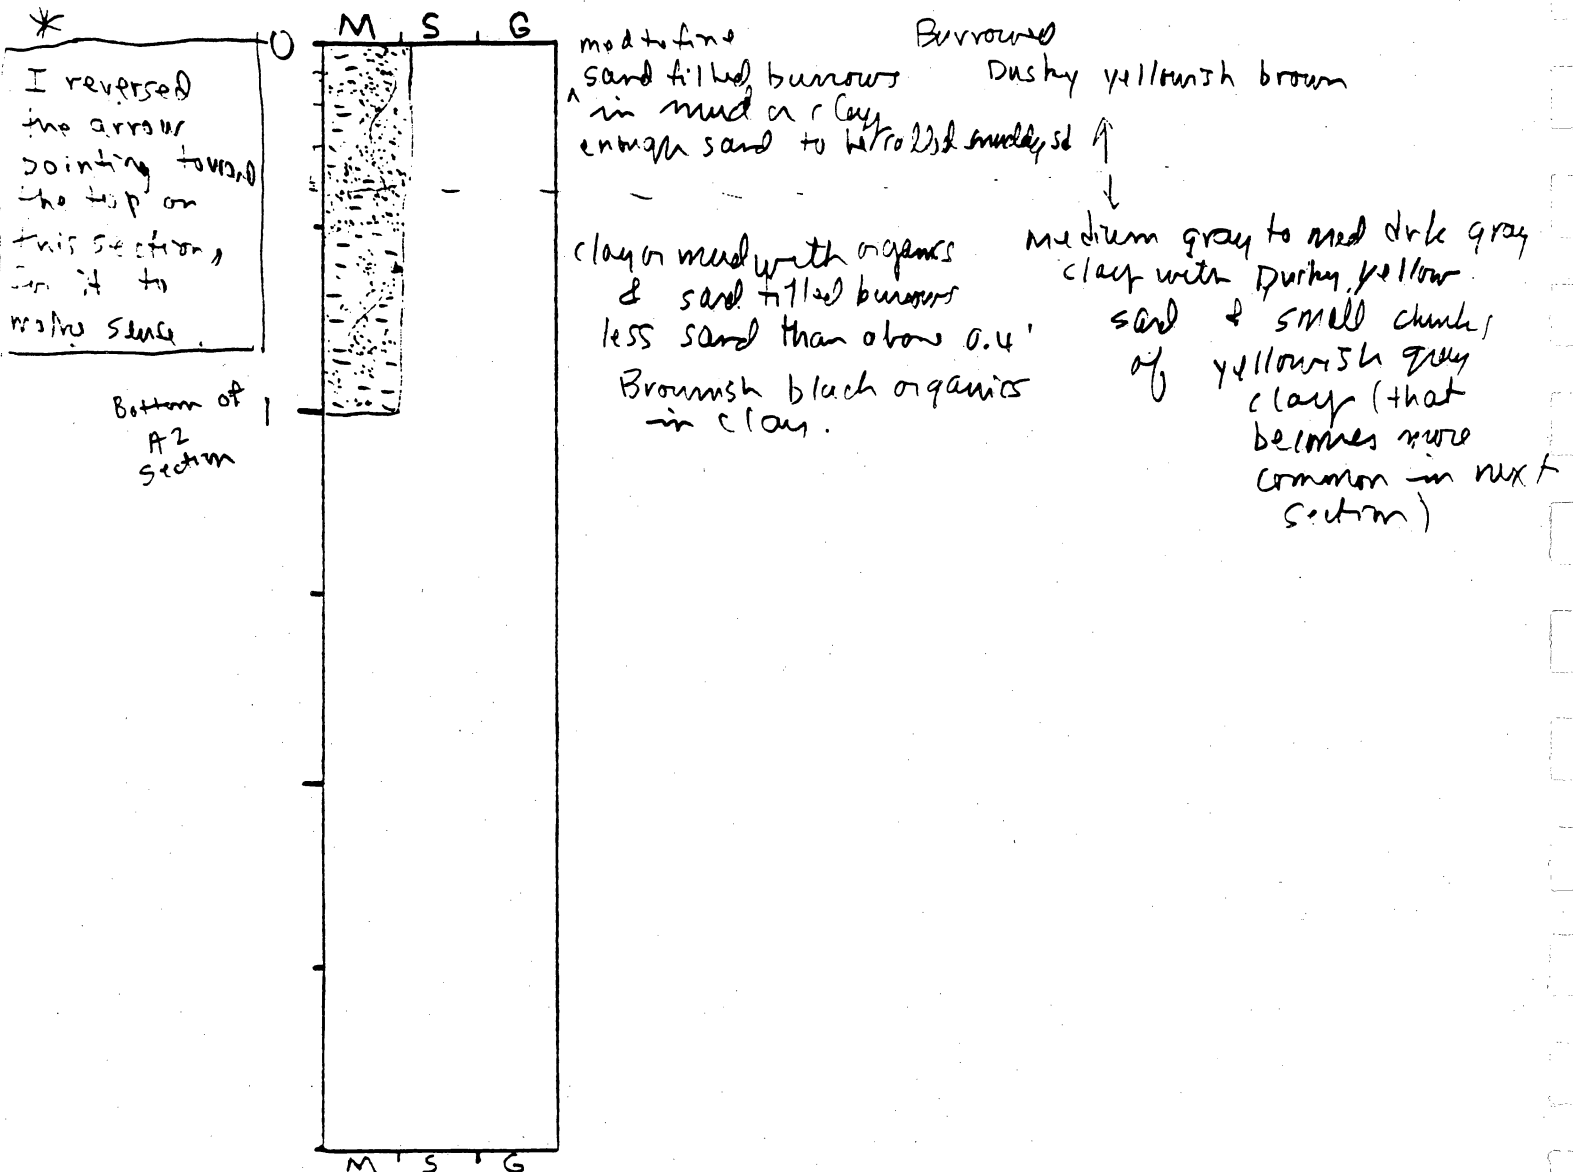 *
I reversed
the arrow
pointing toward
the top on
this section,
for it to
make sense.
0
M S G
med to fine
sand filled burrows
^ in mud or clay
enough sand to be called muddy sd
Burrowed
Dusky yellowish brown
clay or mud with organics
& sand filled burrows
less sand than above 0.4'
Brownish black organics
in clay.
Medium gray to med drk gray
clay with Dusky yellow
sand & small chunks
of yellowish gray
clay (that
becomes more
common in next
section)
Bottom of
A2
section
1
M S G